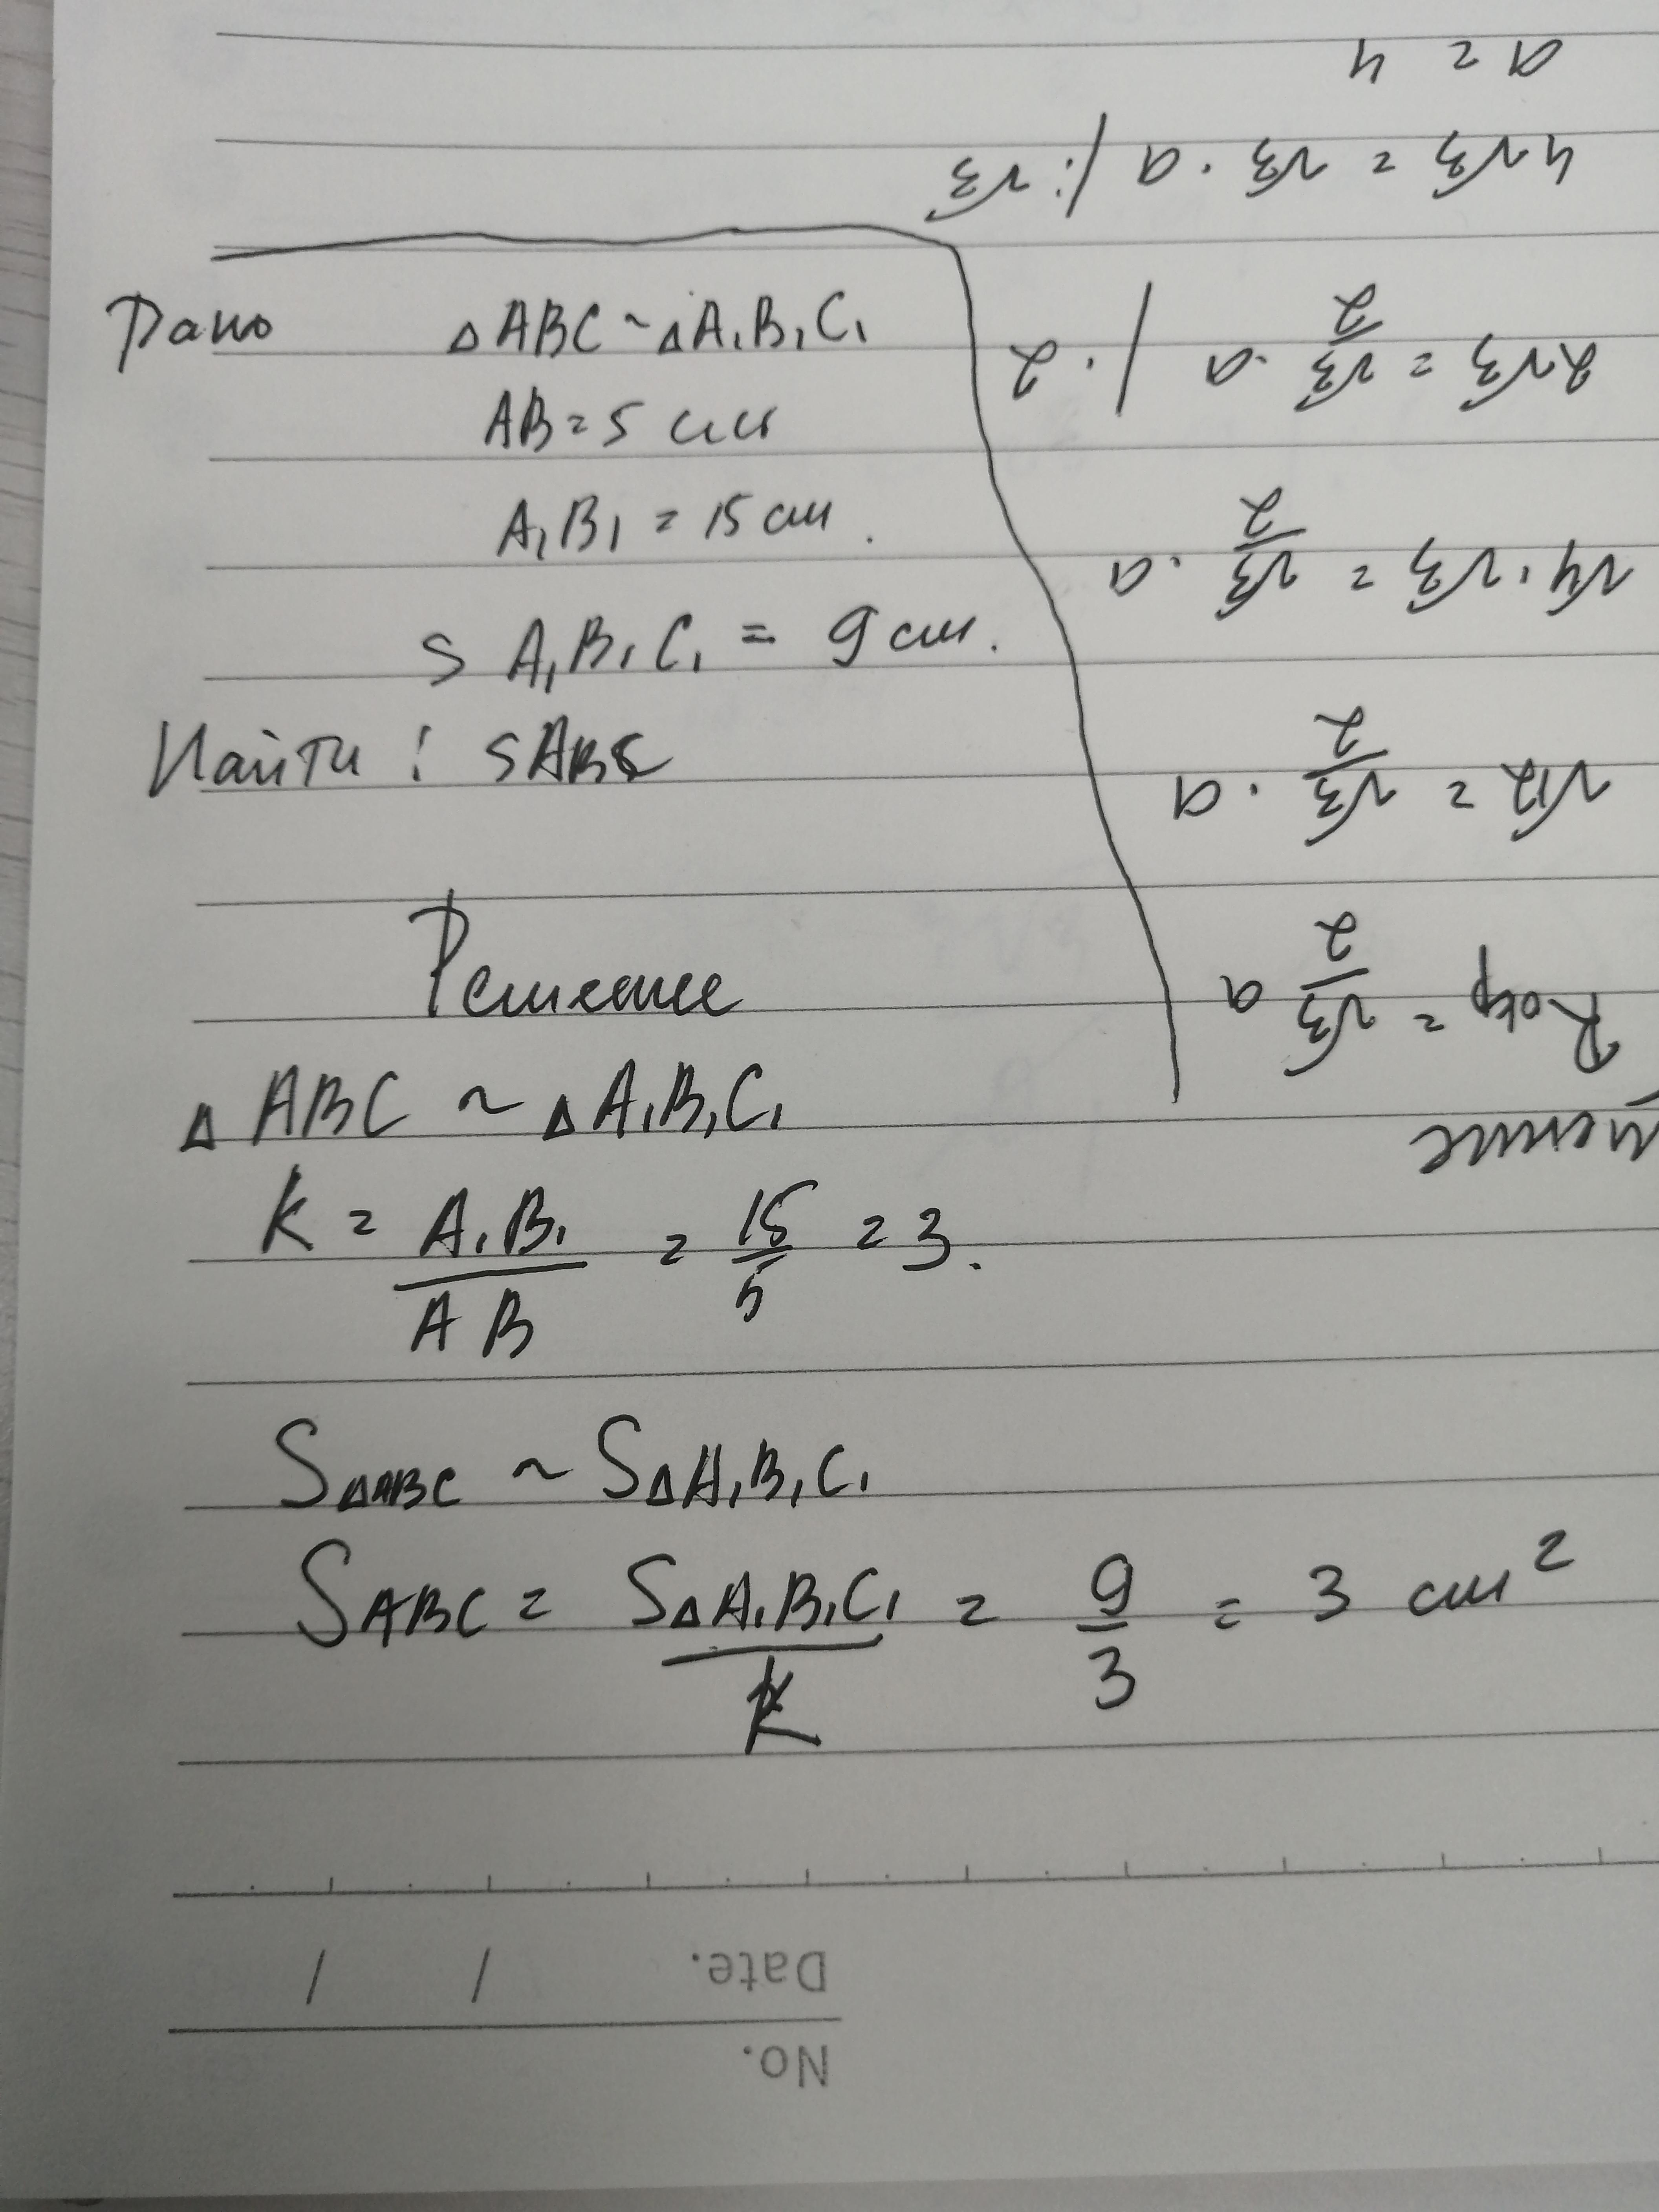 Дано ∆ABC ~ ∆A₁B₁C₁
AB = 5 см
A₁B₁ = 15 см.
S A₁B₁C₁ = 9 см.
Найти: SABC
Решение
∆ ABC ~ ∆ A₁B₁C₁
k = A₁B₁/AB = 15/5 = 3.
S∆ABC ~ S∆A₁B₁C₁
SABC = S∆A₁B₁C₁/k = 9/3 = 3 см²
Rокр = √3/2 a
√12 = √3/2 · a
√4 · √3 = √3/2 · a
2√3 = √3/2 · a /· 2
4√3 = √3 · a /: √3
a = 4
No.
Date. / /